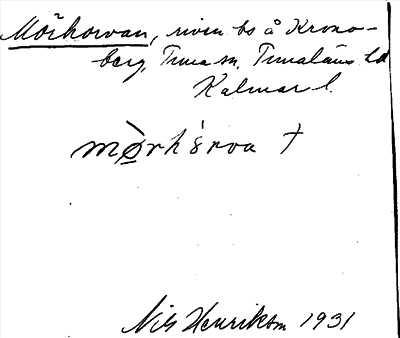 Mörhorvan, riven bs å Krono-
berg, Tuna sn, Tunaläns hd
Kalmar l.
mø̀rhórva †
Nils Henrikson 1931